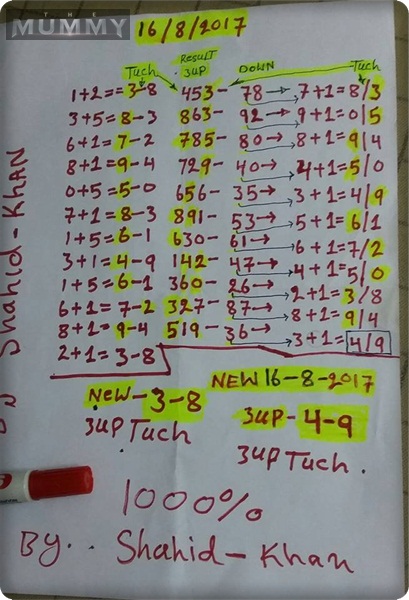 THE
MUMMY
16/8/2017
Tuch RESULT 3UP DOWN Tuch
1+2==3-8 453- 78→ 7+1=8/3
3+5=8-3 863- 92→ 9+1=0/5
6+1=7-2 785- 80→ 8+1=9/4
8+1=9-4 729- 40→ 4+1=5/0
0+5=5-0 656- 35→ 3+1=4/9
7+1=8-3 891- 53→ 5+1=6/1
1+5=6-1 630- 61→ 6+1=7/2
3+1=4-9 142- 47→ 4+1=5/0
1+5=6-1 360- 26→ 2+1=3/8
6+1=7-2 327- 87→ 8+1=9/4
8+1=9-4 519- 36→ 3+1=4/9
2+1=3-8
NEW-3-8
3UP Tuch
NEW 16-8-2017
3UP-4-9
3UP Tuch.
1000%
BY.. Shahid-Khan
Shahid-KHAN